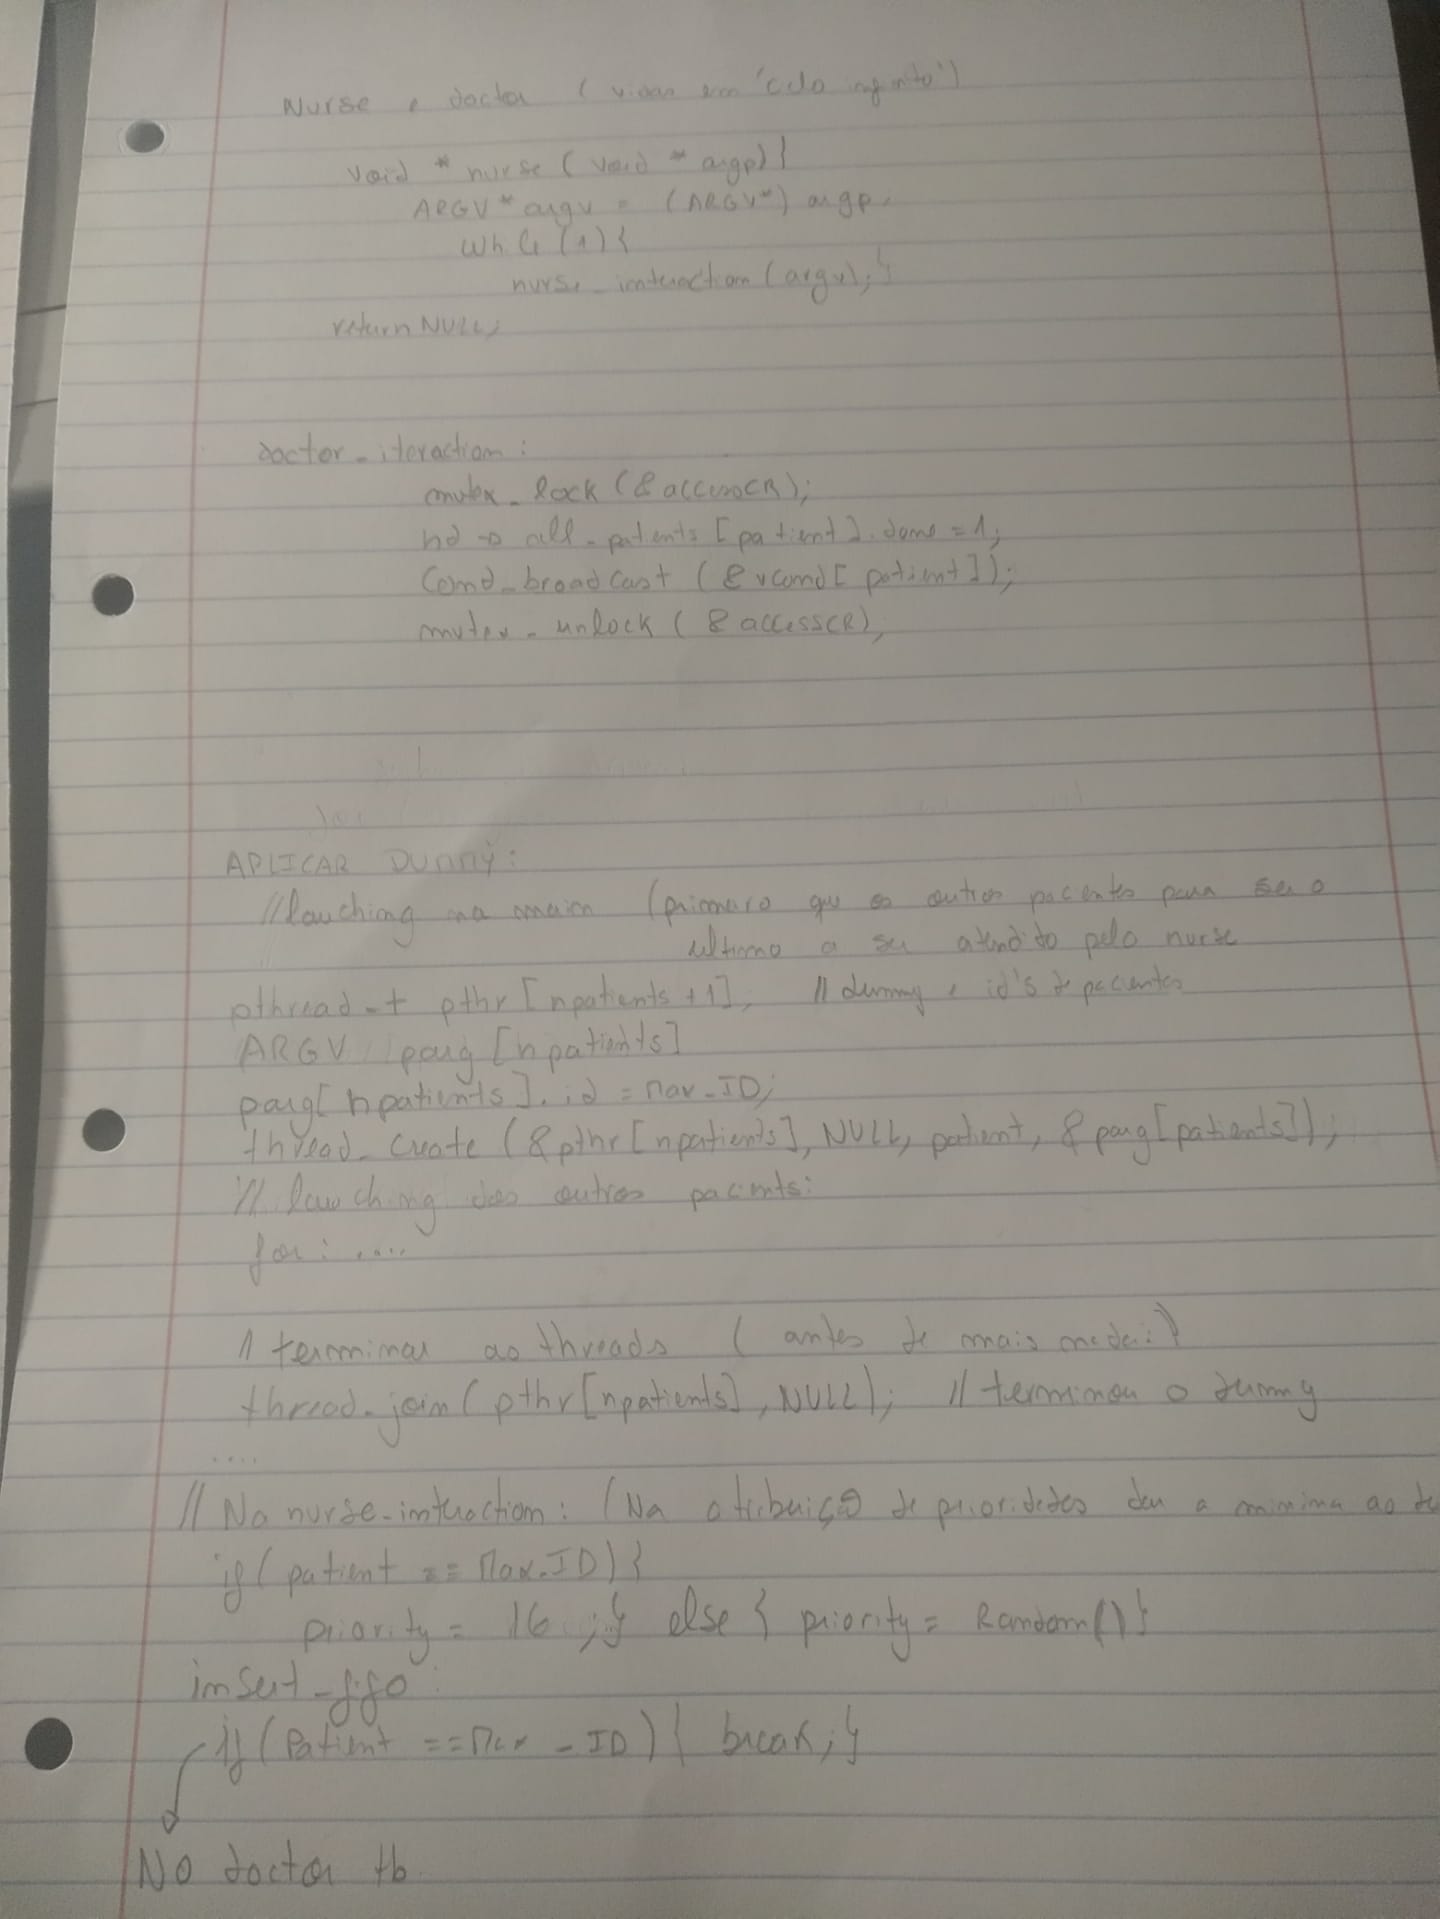 Nurse e doctor (vivas em 'ciclo infinito')
void * nurse (void * argp){
ARGV* argv = (ARGV*) argp;
while (1){
nurse_interaction (argv); }
return NULL;
doctor_iteraction :
mutex_lock (& accessCR);
hd -> all_patients [patient].done = 1;
Cond_broadcast (& vcond[patient]);
mutex_unlock (& accessCR),
APLICAR DUMMY :
// lauching na main (primeiro que os outros pacientes para ser o
ultimo a ser atendido pelo nurse
pthread_t pthr [npatients +1]; // dummy e id's de pacientes
ARGV parg [npatients]
parg[npatients].id = Max_ID;
thread_create (& pthr [npatients], NULL, patient, & parg [patients]);
// lauching dos outros pacients:
for : ....
// terminar as threads (antes de mais nada:)
thread_join( pthr[npatients], NULL); // terminou o dummy
....
// No nurse_interaction : (Na atribuição de prioridades dar a minima ao
if ( patient == Max_ID) {
priority = 16 ;} else { priority = Random()}
insert_fifo :
if (Patient == Max_ID) { break; }
No doctor tb